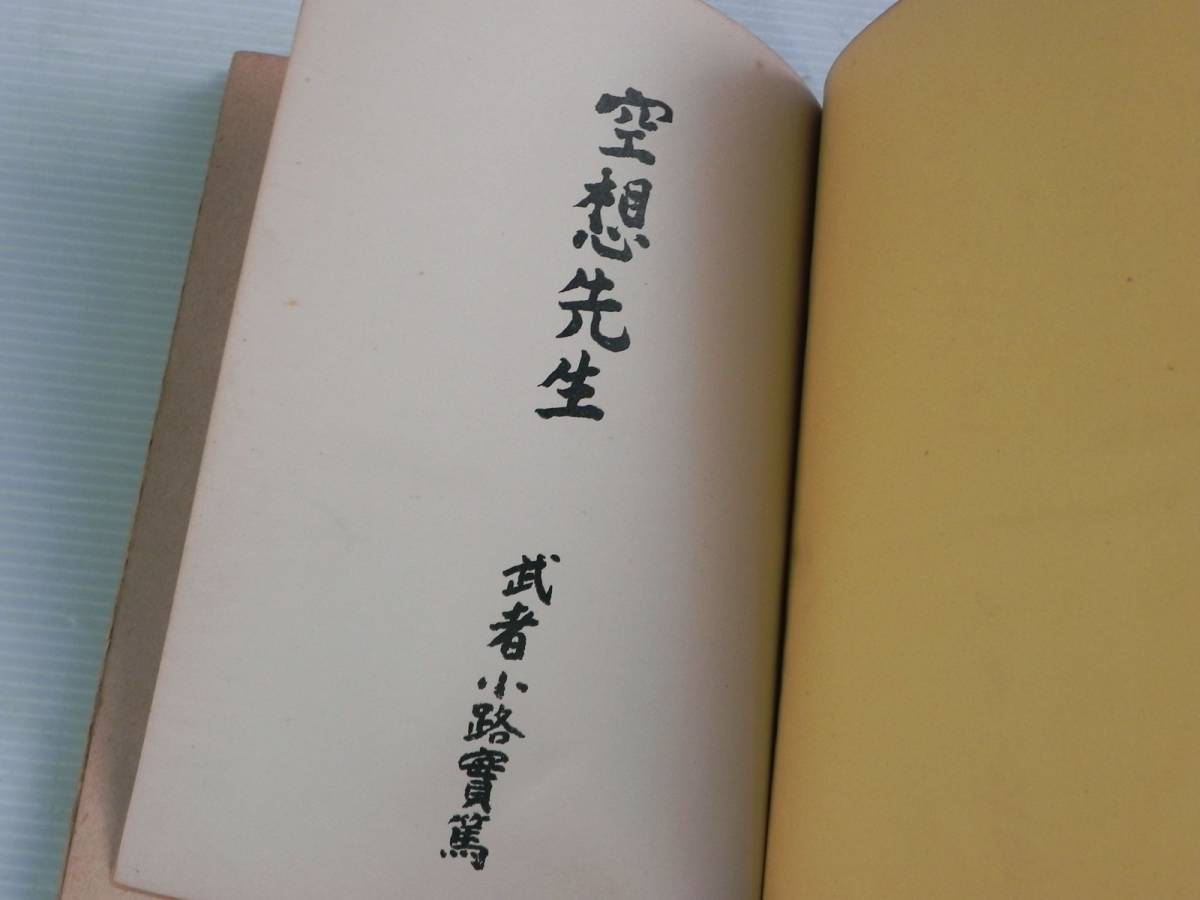 空想先生
武者小路實篤